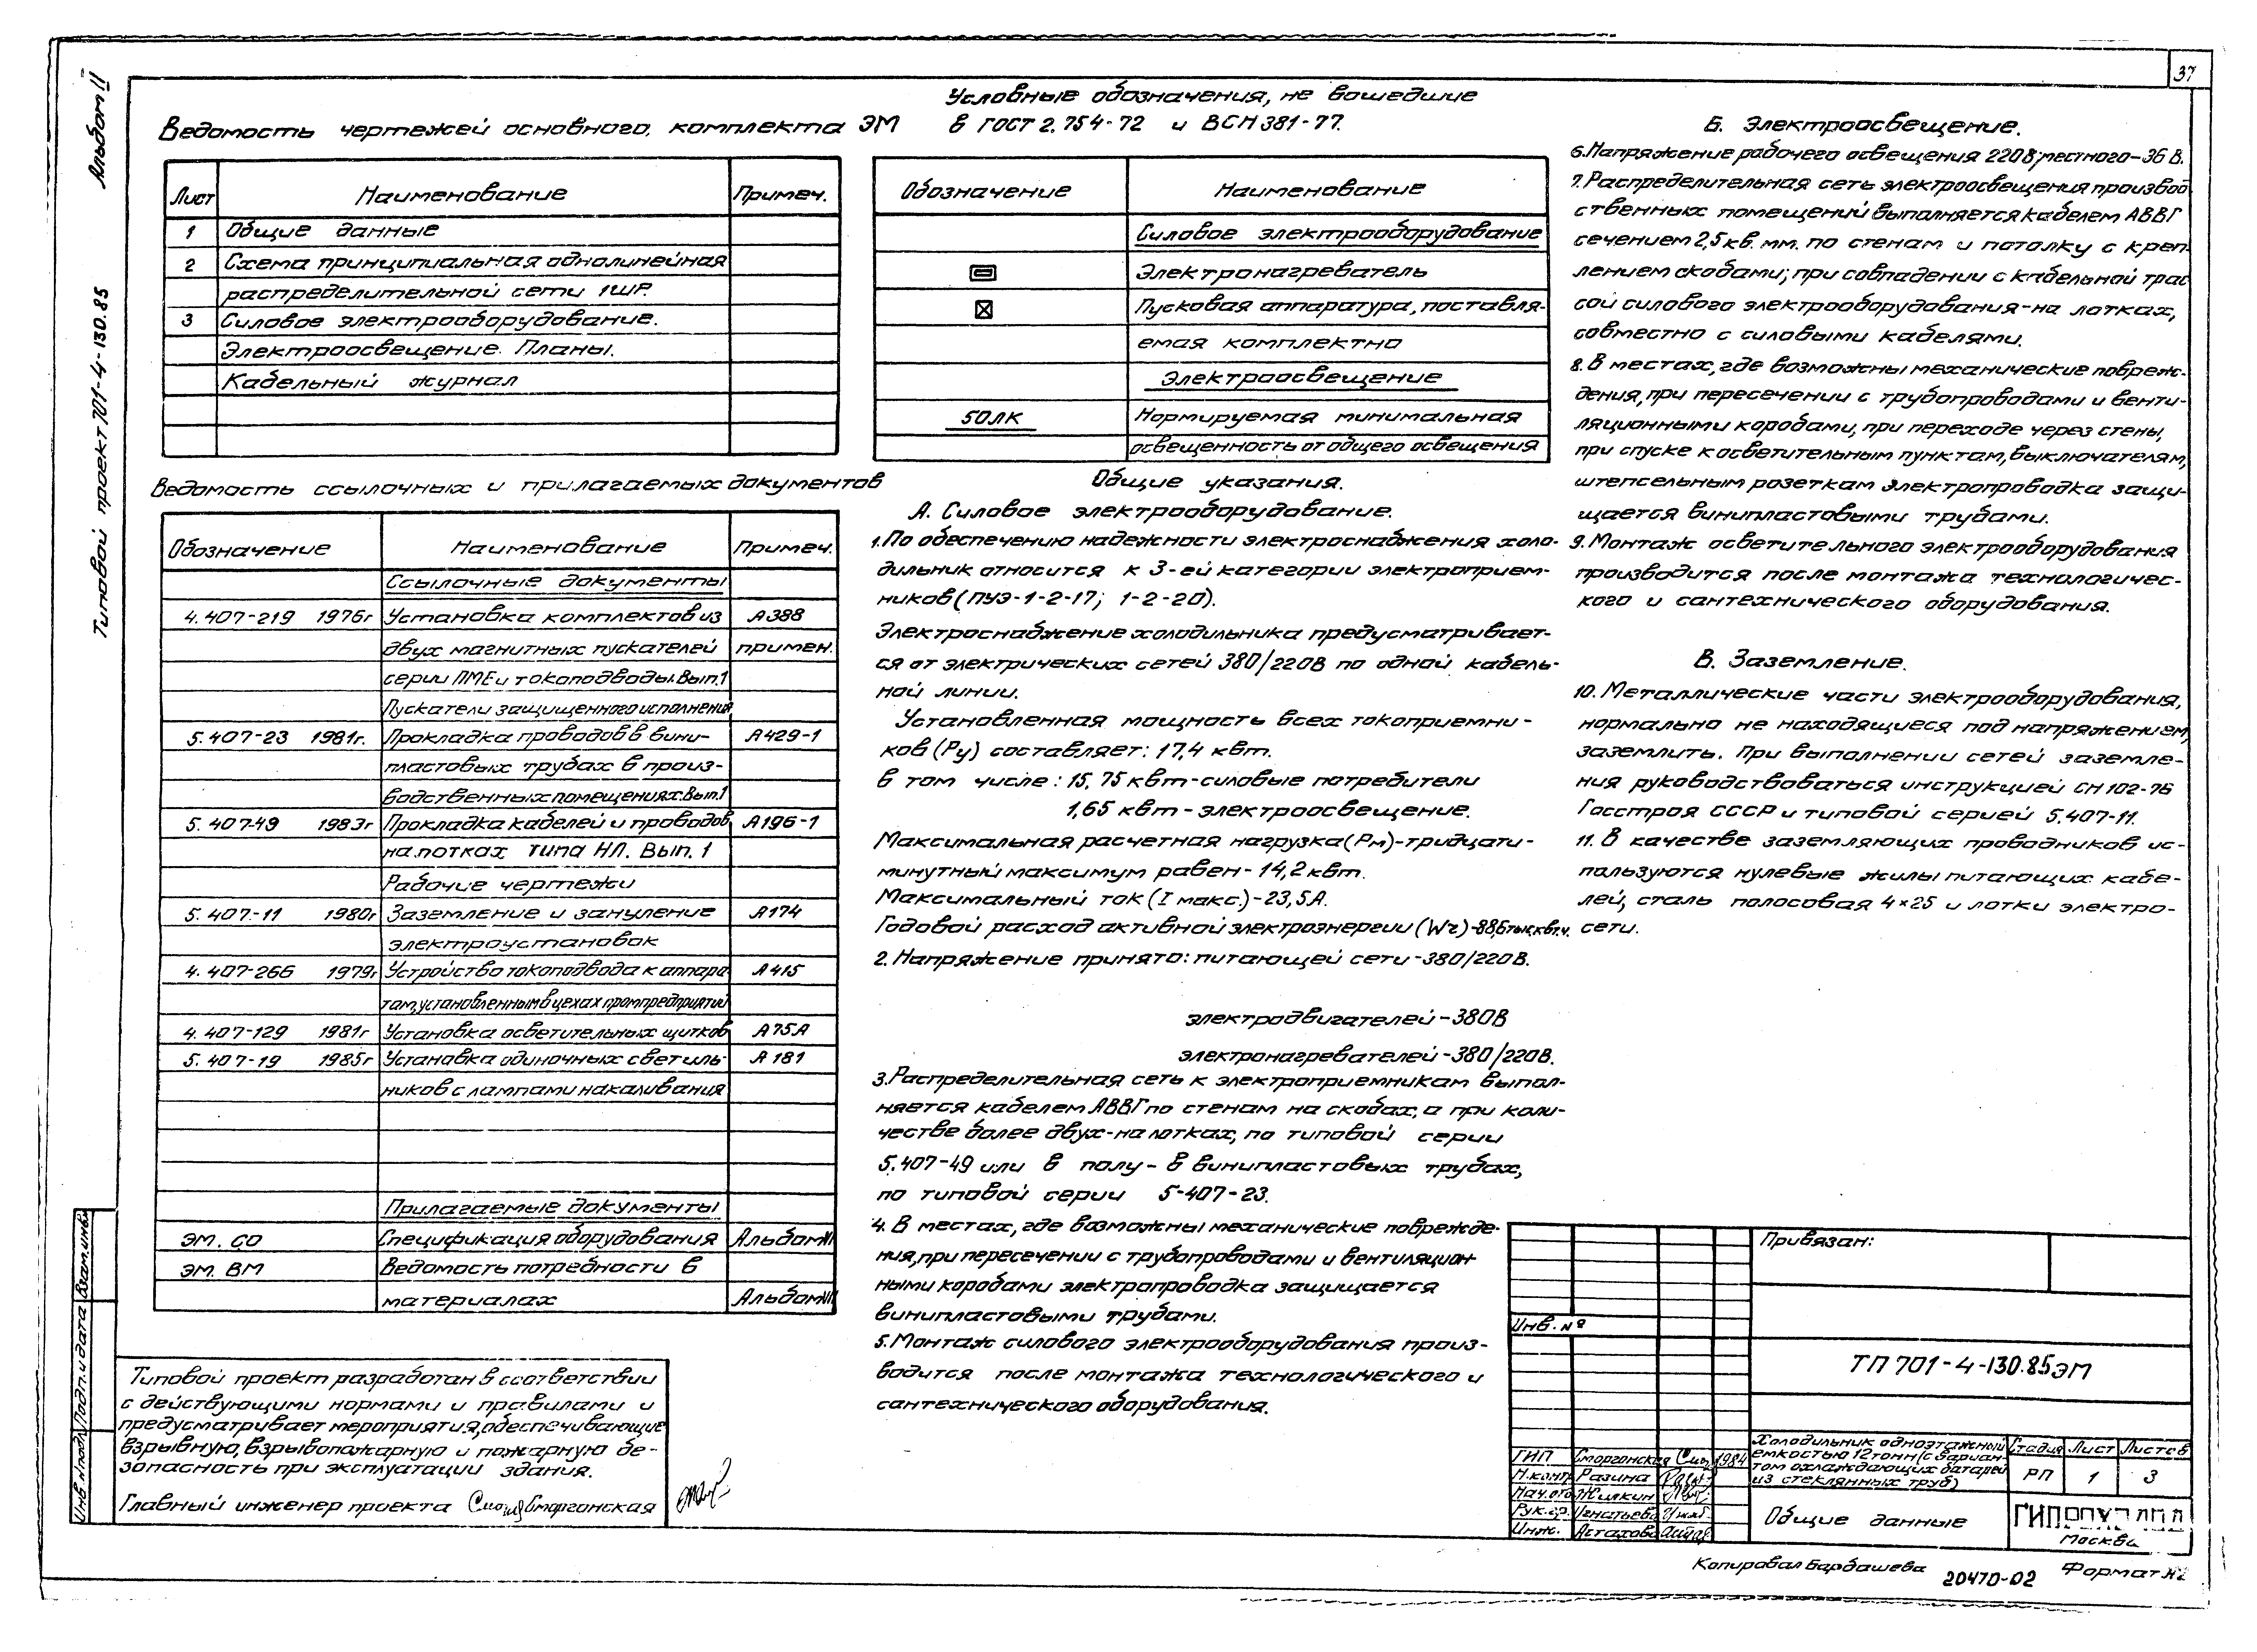 37
Альбом II
Типовой проект 701-4-130.85
Ведомость чертежей основного комплекта ЭМ
Лист Наименование Примеч.
1 Общие данные
2 Схема принципиальная однолинейная
распределительной сети 1ШР.
3 Силовое электрооборудование.
Электроосвещение. Планы.
Кабельный журнал
Ведомость ссылочных и прилагаемых документов
Обозначение Наименование Примеч.
Ссылочные документы
4.407-219 1976г Установка комплектов из А388
двух магнитных пускателей примен.
серии ПМЕ и токоподводы. Вып.1
Пускатели защищенного исполнения
5.407-23 1981г. Прокладка проводов в вини- А429-1
пластовых трубах в произ-
водственных помещениях. Вып.1
5.407-49 1983г Прокладка кабелей и проводов А196-1
на лотках типа НЛ. Вып. 1
Рабочие чертежи
5.407-11 1980г Заземление и зануление А174
электроустановок
4.407-266 1979г Устройство токоподвода к аппара А415
там, установленным в цехах промпредприятий
4.407-129 1981г Установка осветительных щитков А75А
5.407-19 1985г Установка одиночных светиль- А181
ников с лампами накаливания
Прилагаемые документы
ЭМ. СО Спецификация оборудования Альбом
ЭМ. ВМ Ведомость потребности в
материалах Альбом
Типовой проект разработан в соответствии
с действующими нормами и правилами и
предусматривает мероприятия, обеспечивающие
взрывную, взрывопожарную и пожарную бе-
зопасность при эксплуатации здания.
Главный инженер проекта Сморгонская
Условные обозначения, не вошедшие
в ГОСТ 2.754-72 и ВСН 381-77.
Обозначение Наименование
Силовое электрооборудование
Электронагреватель
Пусковая аппаратура, поставля-
емая комплектно
Электроосвещение
50ЛК Нормируемая минимальная
освещенность от общего освещения
Общие указания.
А. Силовое электрооборудование.
1. По обеспечению надежности электроснабжения холо-
дильник относится к 3-ей категории электроприем-
ников (ПУЭ-1-2-17; 1-2-20).
Электроснабжение холодильника предусматривает-
ся от электрических сетей 380/220В по одной кабель-
ной линии.
Установленная мощность всех токоприемни-
ков (Ру) составляет: 17,4 квт.
в том числе: 15,75 квт-силовые потребители
1,65 квт-электроосвещение.
Максимальная расчетная нагрузка (Рм)-тридцати-
минутный максимум равен-14,2 квт.
Максимальный ток (I макс.)-23,5А.
Годовой расход активной электроэнергии (Wг)-88,6тыс.квт.ч.
2. Напряжение принято: питающей сети-380/220В.
электродвигателей-380В
электронагревателей-380/220В.
3. Распределительная сеть к электроприемникам выпол-
няется кабелем АВВГ по стенам на скобах, а при коли-
честве более двух-на лотках, по типовой серии
5.407-49 или в полу-в винипластовых трубах,
по типовой серии 5-407-23.
4. В местах, где возможны механические поврежде-
ния, при пересечении с трубопроводами и вентиляцион
ными коробами электропроводка защищается
винипластовыми трубами.
5. Монтаж силового электрооборудования произ-
водится после монтажа технологического и
сантехнического оборудования.
Б. Электроосвещение.
6. Напряжение рабочего освещения 220В; местного-36 В.
7. Распределительная сеть электроосвещения производ
ственных помещений выполняется кабелем АВВГ
сечением 2,5 кв. мм. по стенам и потолку с креп-
лением скобами; при совпадении с кабельной трас
сой силового электрооборудования-на лотках,
совместно с силовыми кабелями.
8. В местах, где возможны механические повреж-
дения, при пересечении с трубопроводами и венти-
ляционными коробами, при переходе через стены,
при спуске к осветительным пунктам, выключателям,
штепсельным розеткам электропроводка защи-
щается винипластовыми трубами.
9. Монтаж осветительного электрооборудования
производится после монтажа технологичес-
кого и сантехнического оборудования.
В. Заземление.
10. Металлические части электрооборудования,
нормально не находящиеся под напряжением,
заземлить. При выполнении сетей заземле-
ния руководствоваться инструкцией СН 102-76
Госстроя СССР и типовой серией 5.407-11.
11. В качестве заземляющих проводников ис-
пользуются нулевые жилы питающих кабе-
лей, сталь полосовая 4×25 и лотки электро-
сети.
Привязан:
Инв. №
ТП 701-4-130.85 ЭМ
ГИП Сморгонская 1984
Н.конт Разина
Нач.отд Жилкин
Рук.гр. Игнатьева
Инж. Астахова
Холодильник одноэтажный
емкостью 12 тонн (с вариан-
том охлаждающих батарей
из стеклянных труб)
Стадия Лист Листов
РП 1 3
Общие данные
Москва
Инв.№подл. Подп. и дата Взам.инв.
Копировал Бардашева 20470-02 Формат